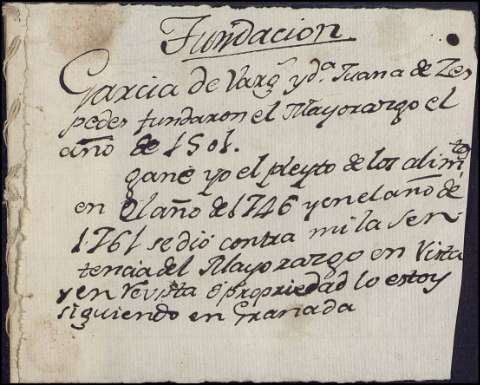 Fundacion
Garcia de Varg.s y d.a Juana de Zes
pedes fundaron el Mayorazgo el
año de 1501.
gane yo el pleyto de los alim.tos
en el año de 1746 y en el año de
1761 se dió contra mi la Sen
tencia del Mayorazgo en Vista
y en Revista propriedad lo estoy
siguiendo en Granada